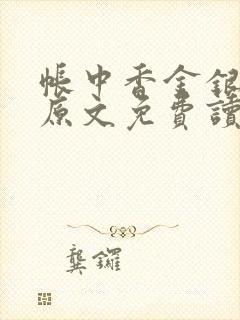 帳中香金銀
原文免費讀
龔鑼